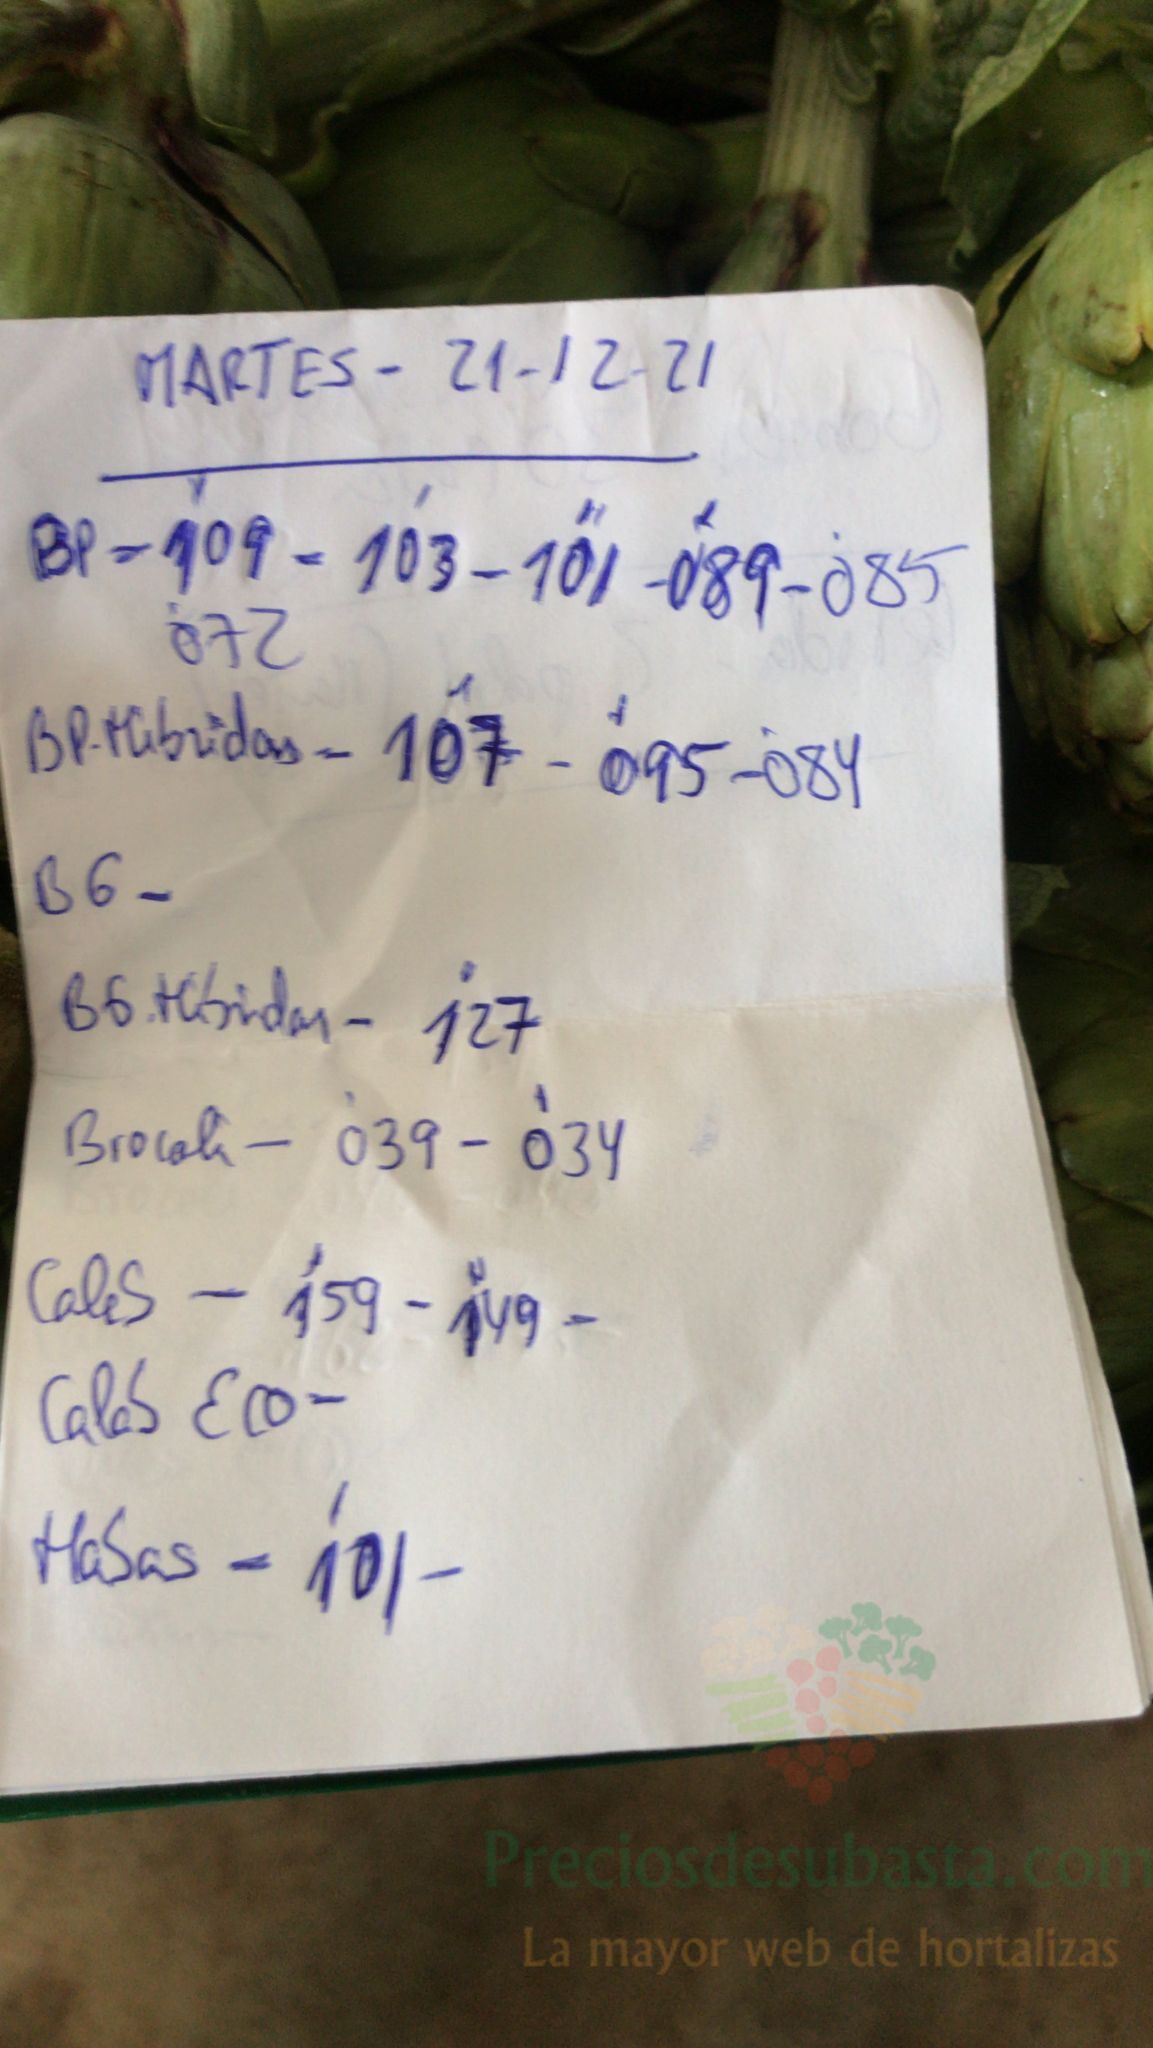 MARTES - 21-12-21
BP = 109 - 103 - 101 - 089 - 085
072
BP.Hibridas - 107 - 095 - 084
B6 -
B6.Hibridas - 127
Brocoli - 039 - 034
Calés - 159 - 149 -
Calés Eco -
HaBas - 101 -
Preciosdesubasta.com
La mayor web de hortalizas